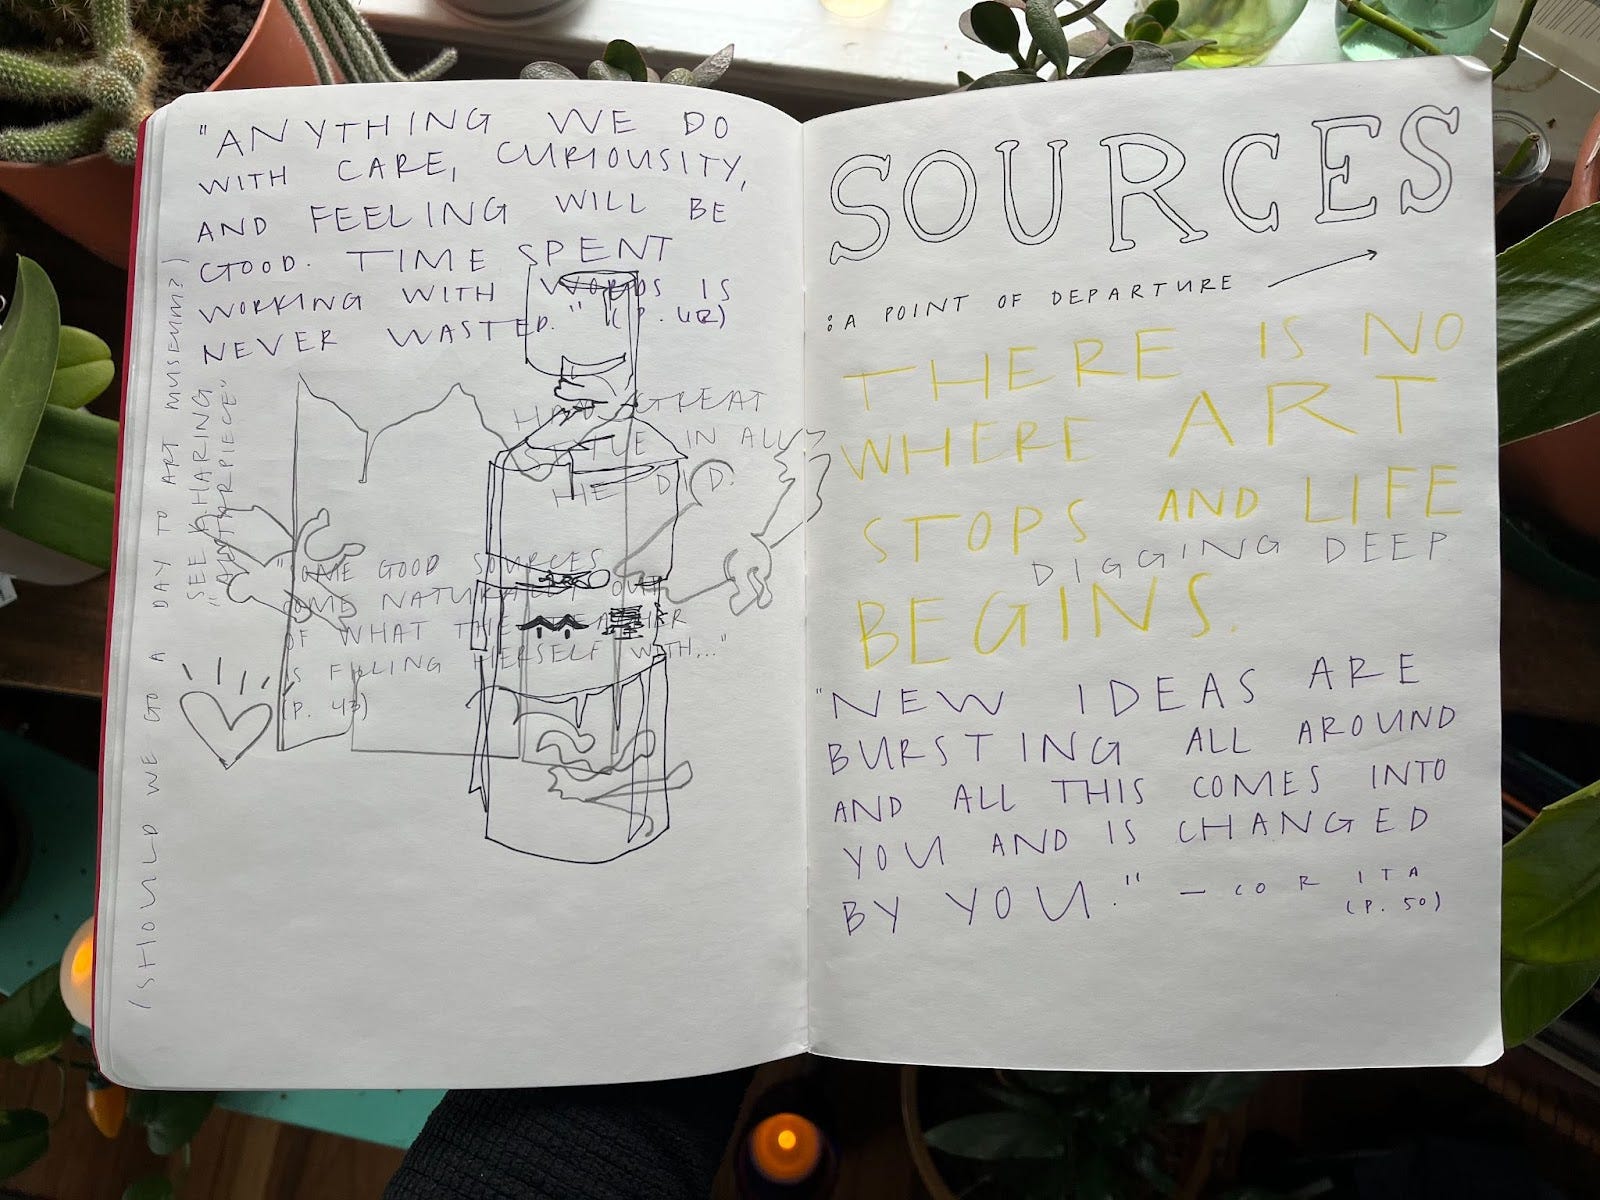 "ANYTHING WE DO
WITH CARE, CURIOUSITY,
AND FEELING WILL BE
GOOD. TIME SPENT
WORKING WITH WORDS IS
NEVER WASTED." (P. 42)
GREAT
IN ALL
HE DID.
GOOD SOURCES
COME NATURALLY OUT
OF WHAT THE TEACHER
IS FILLING HERSELF WITH..."
(P. 43)
(SHOULD WE GO A DAY TO ART MUSEUM?)
SEE HARING
"ALTARPIECE"
SOURCES
: A POINT OF DEPARTURE
THERE IS NO
WHERE ART
STOPS AND LIFE
DIGGING DEEP
BEGINS.
"NEW IDEAS ARE
BURSTING ALL AROUND
AND ALL THIS COMES INTO
YOU AND IS CHANGED
BY YOU." — CORITA
(P. 50)